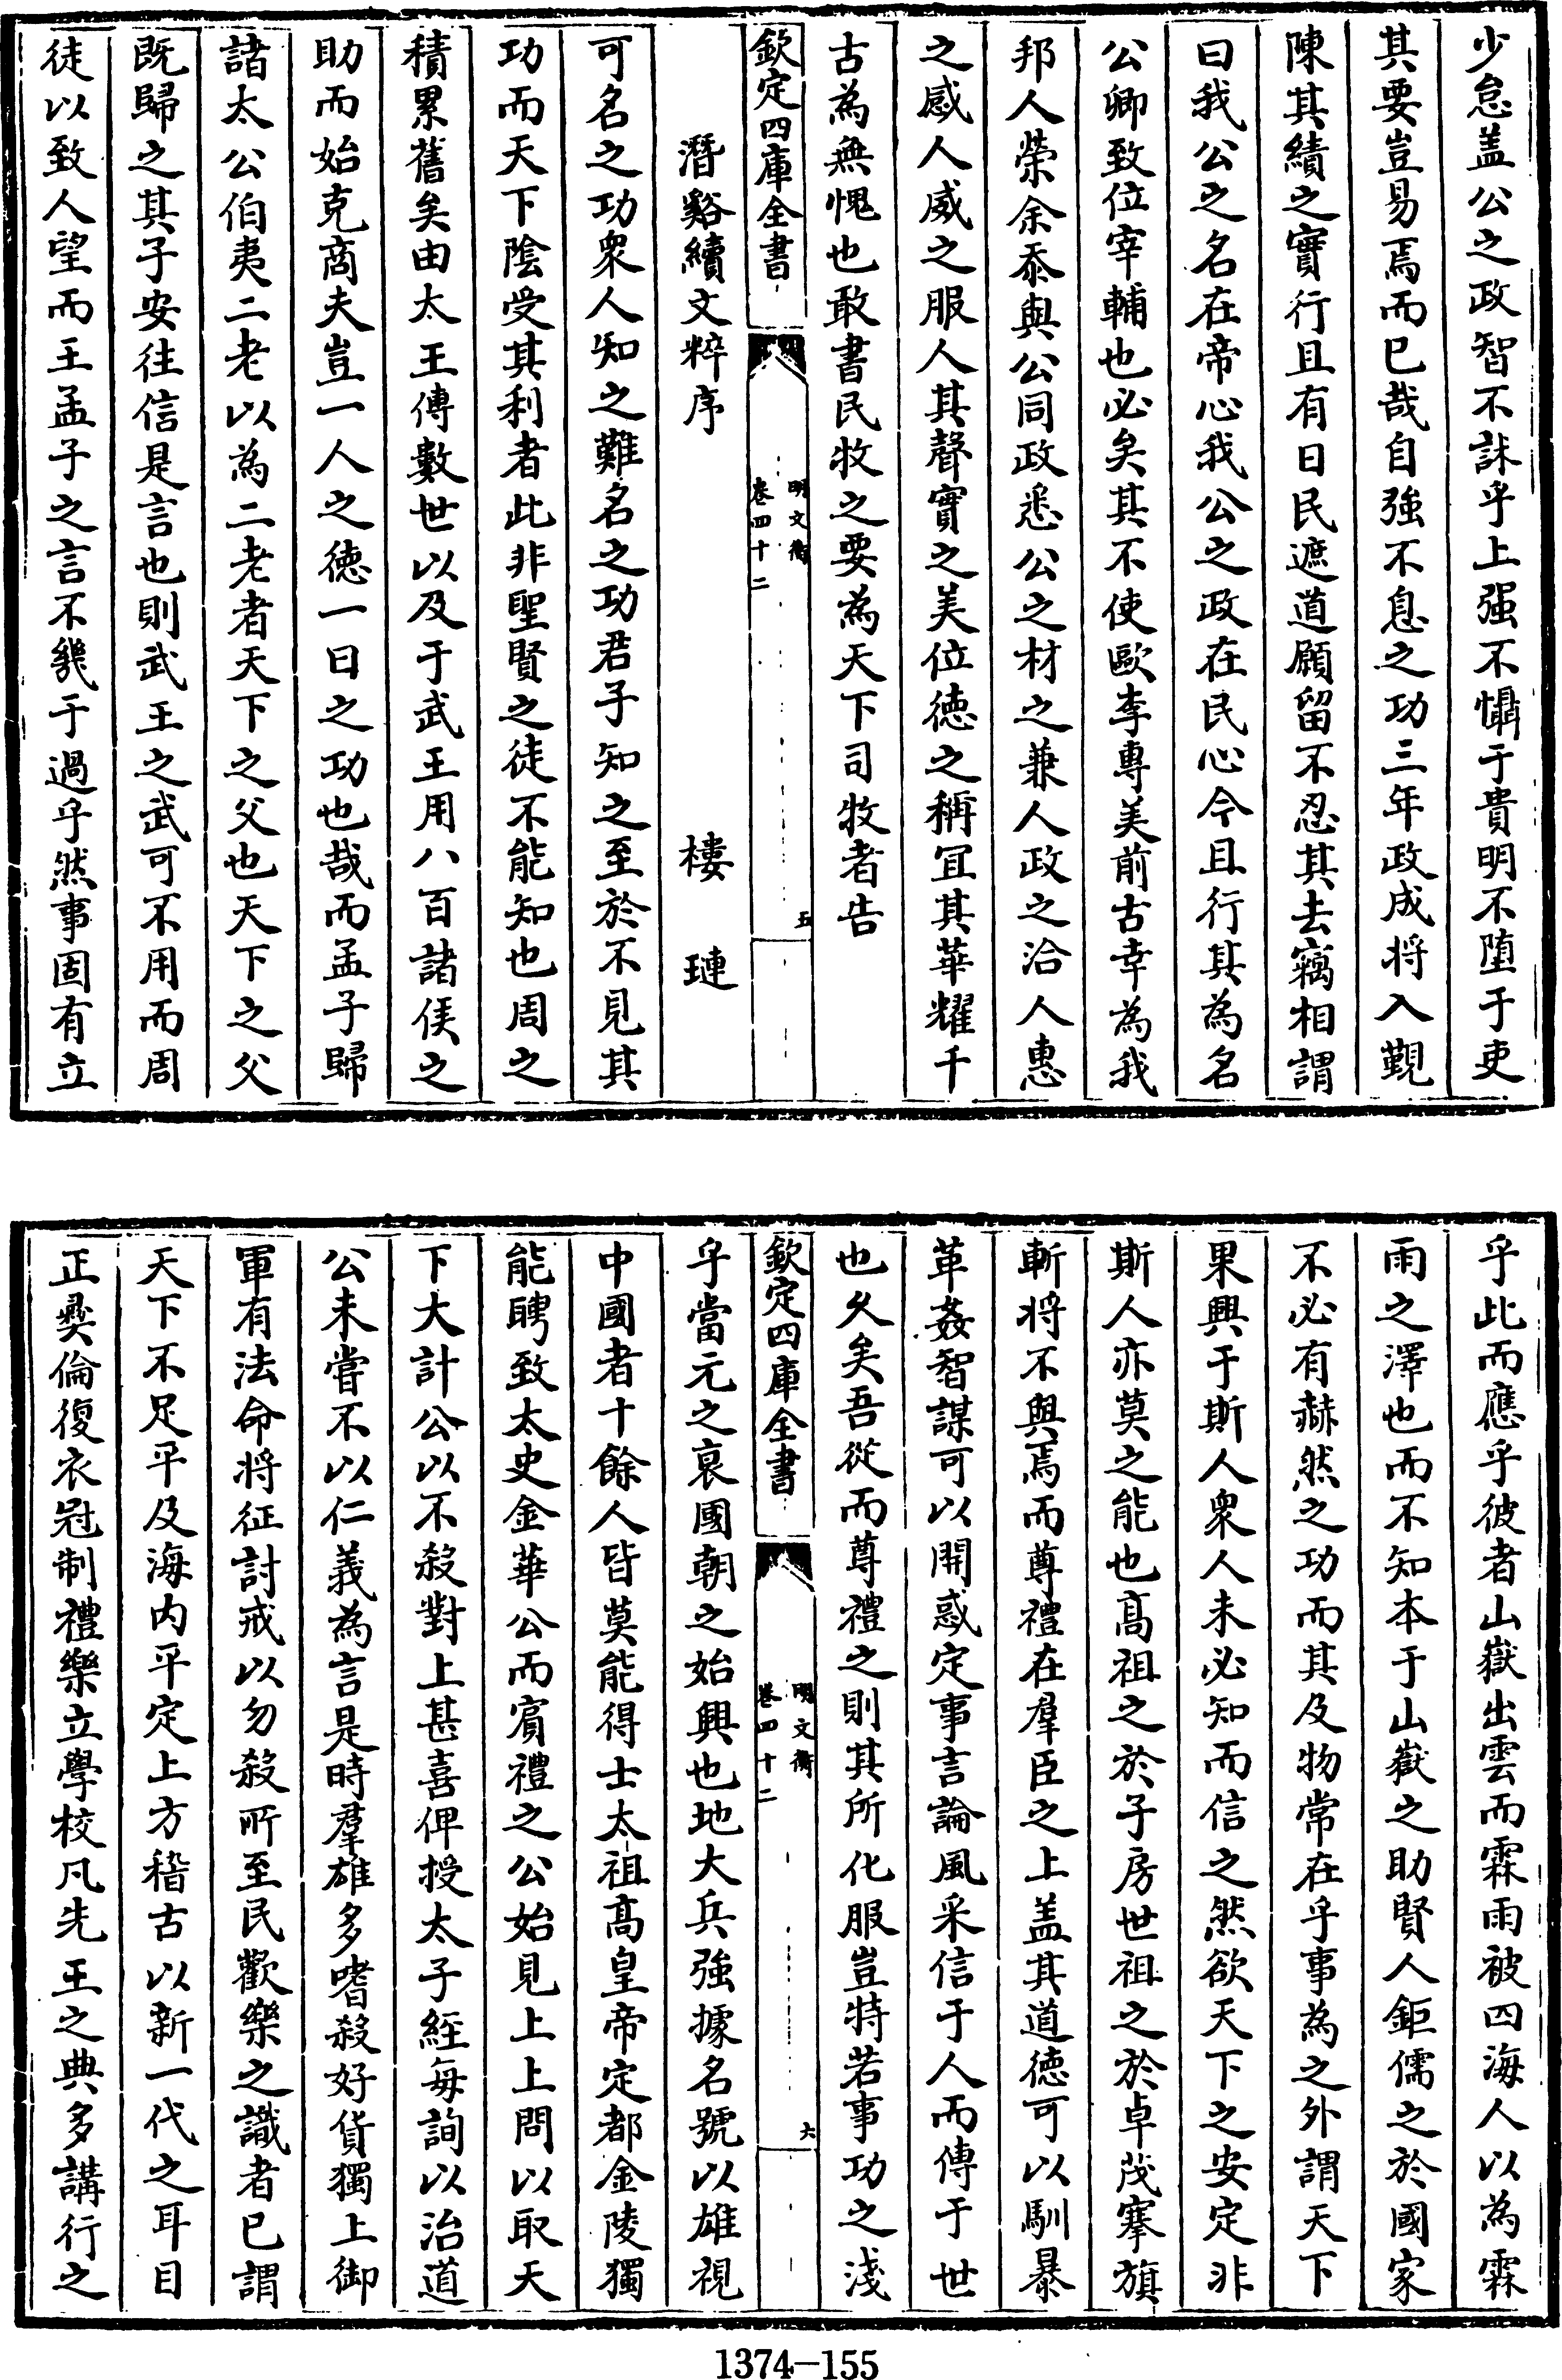 少怠盖公之政智不訹乎上强不慴于貴明不墮于吏
其要豈易焉而已哉自強不息之功三年政成将入覲
陳其績之實行且有日民遮道願留不忍其去竊相謂
曰我公之名在帝心我公之政在民心今且行其為名
公卿致位宰輔也必矣其不使歐李專美前古幸為我
邦人榮余忝與公同政悉公之材之兼人政之洽人惠
之感人威之服人其聲實之美位徳之稱宜其華耀千
古為無愧也敢書民牧之要為天下司牧者告
欽定四庫全書 明文衡 卷四十二 五
潛谿續文粹序 樓璉
可名之功衆人知之難名之功君子知之至於不見其
功而天下陰受其利者此非聖賢之徒不能知也周之
積累舊矣由太王傳數世以及于武王用八百諸侯之
助而始克商夫豈一人之徳一日之功也哉而孟子歸
諸太公伯夷二老以為二老者天下之父也天下之父
既歸之其子安往信是言也則武王之武可不用而周
徒以致人望而王孟子之言不幾于過乎然事固有立
乎此而應乎彼者山嶽出雲而霖雨被四海人以為霖
雨之澤也而不知本于山嶽之助賢人鉅儒之於國家
不必有赫然之功而其及物常在乎事為之外謂天下
果興于斯人衆人未必知而信之然欲天下之安定非
斯人亦莫之能也髙祖之於子房世祖之於卓茂搴旗
斬将不與焉而尊禮在羣臣之上盖其道徳可以馴暴
革姦智謀可以開惑定事言論風采信于人而傳于世
也乆矣吾從而尊禮之則其所化服豈特若事功之淺
欽定四庫全書 明文衡 卷四十二 六
乎當元之衰國朝之始興也地大兵強據名號以雄視
中國者十餘人皆莫能得士太祖髙皇帝定都金陵獨
能聘致太史金華公而賔禮之公始見上上問以取天
下大計公以不殺對上甚喜俾授太子經毎詢以治道
公未嘗不以仁義為言是時羣雄多嗜殺好貨獨上御
軍有法命将征討戒以勿殺所至民歡樂之識者已謂
天下不足平及海内平定上方稽古以新一代之耳目
正彜倫復衣冠制禮樂立學校凡先王之典多講行之
1374—155